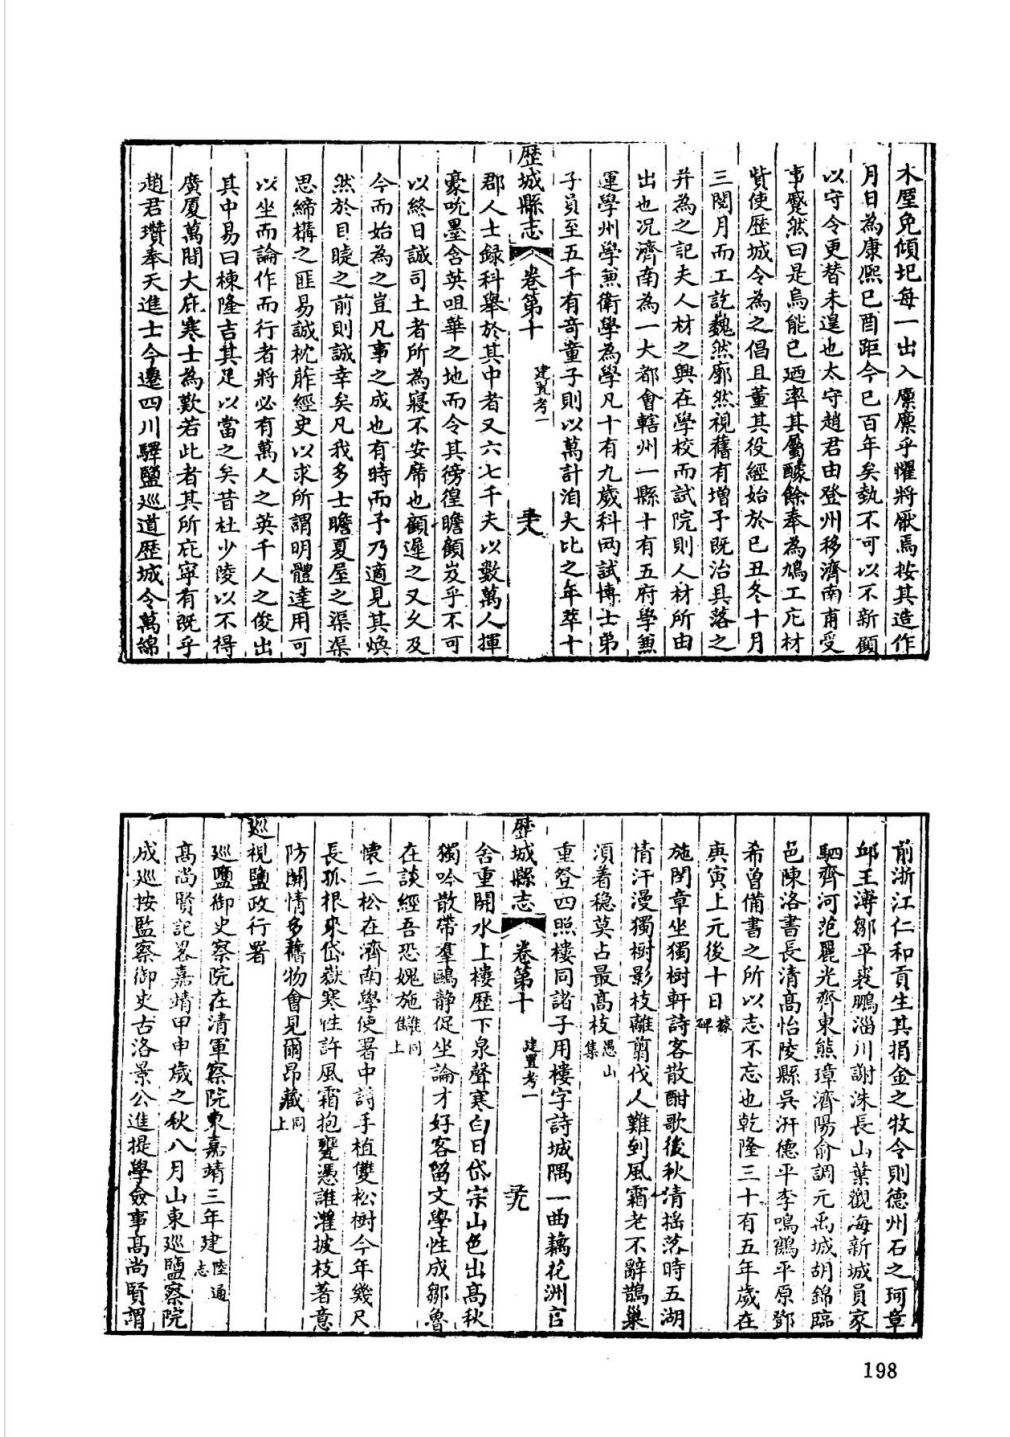 木屋免傾圮每一出入廩廩乎懼將厭焉按其造作
月日為康熙己酉距今已百年矣埶不可以不新顧
以守令更替未遑也太守趙君由登州移濟南甫受
事蹙然曰是烏能已廼率其屬醵餘奉為鳩工庀材
貲使歷城令為之倡且董其役經始於己丑冬十月
三閱月而工訖巍然廓然視舊有增予既治具落之
并為之記夫人材之興在學校而試院則人材所由
出也况濟南為一大都會轄州一縣十有五府學兼
運學州學兼衛學為學凡十有九歲科兩試博士弟
子員至五千有奇童子則以萬計洎大比之年萃十
歷城縣志 卷第十 建置考一
郡人士録科舉於其中者又六七千夫以數萬人揮
豪吮墨含英咀華之地而令其徬徨瞻顧岌乎不可
以終日誠司土者所為寢不安席也顧遲之又久及
今而始為之豈凡事之成也有時而予乃適見其煥
然於目睫之前則誠幸矣凡我多士瞻夏屋之渠渠
思締構之匪易誠枕葄經史以求所謂明體達用可
以坐而論作而行者將必有萬人之英千人之俊出
其中易曰棟隆吉其足以當之矣昔杜少陵以不得
廣厦萬間大庇寒士為歎若此者其所庇寧有既乎
趙君瓚奉天進士今遷四川驛鹽巡道歷城令萬綿
前浙江仁和貢生其捐金之牧令則德州石之珂章
邱王溥鄒平裘鵬淄川謝洙長山葉觀海新城員家
駟齊河范麗光齊東熊璋濟陽俞調元禹城胡錦臨
邑陳洛書長清高怡陵縣吳汧德平李鳴鸜平原鄧
希曾備書之所以志不忘也乾隆三十有五年歲在
庚寅上元後十日 據碑
施閏章坐獨樹軒詩客散酣歌後秋清摇落時五湖
情汗漫獨樹影枝離翦伐人難到風霜老不辭鵲巢
須着穏莫占最高枝 愚山集
重登四照樓同諸子用樓字詩城隅一曲藕花洲官
歷城縣志 卷第十 建置考一
舍重開水上樓歷下泉聲寒白日岱宗山色出高秋
獨吟散帶羣鷗静促坐論才好客留文學性成鄒魯
在談經吾恐媿施讎 同上
懷二松在濟南學使署中詩手植雙松樹今年幾尺
長孤根來岱嶽寒性許風霜抱甕憑誰灌披枝著意
防閒情多舊物會見爾昂藏 同上
巡視鹽政行署
巡鹽御史察院在清軍察院東嘉靖三年建 陸通志
高尚賢記畧嘉靖甲申歲之秋八月山東巡鹽察院
成巡按監察御史古洛景公進提學僉事高尚賢謂
198